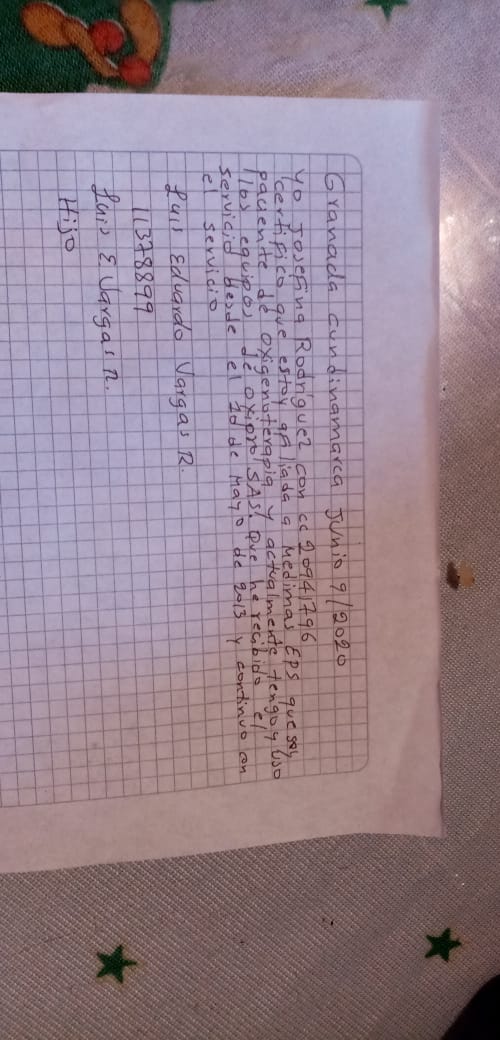 Granada cundinamarca Junio 9/2020
Yo Josefina Rodríguez con cc 20941796
certifico que estoy afiliada a Medimas EPS que soy
paciente de oxigenoterapia y actualmente tengo y uso
los equipos de oxipro SAS. Que he recibido el
servicio desde el 1d de Mayo de 2013 y continuo con
el servicio
Luis Eduardo Vargas R.
11378899
Luis E Vargas R.
Hijo